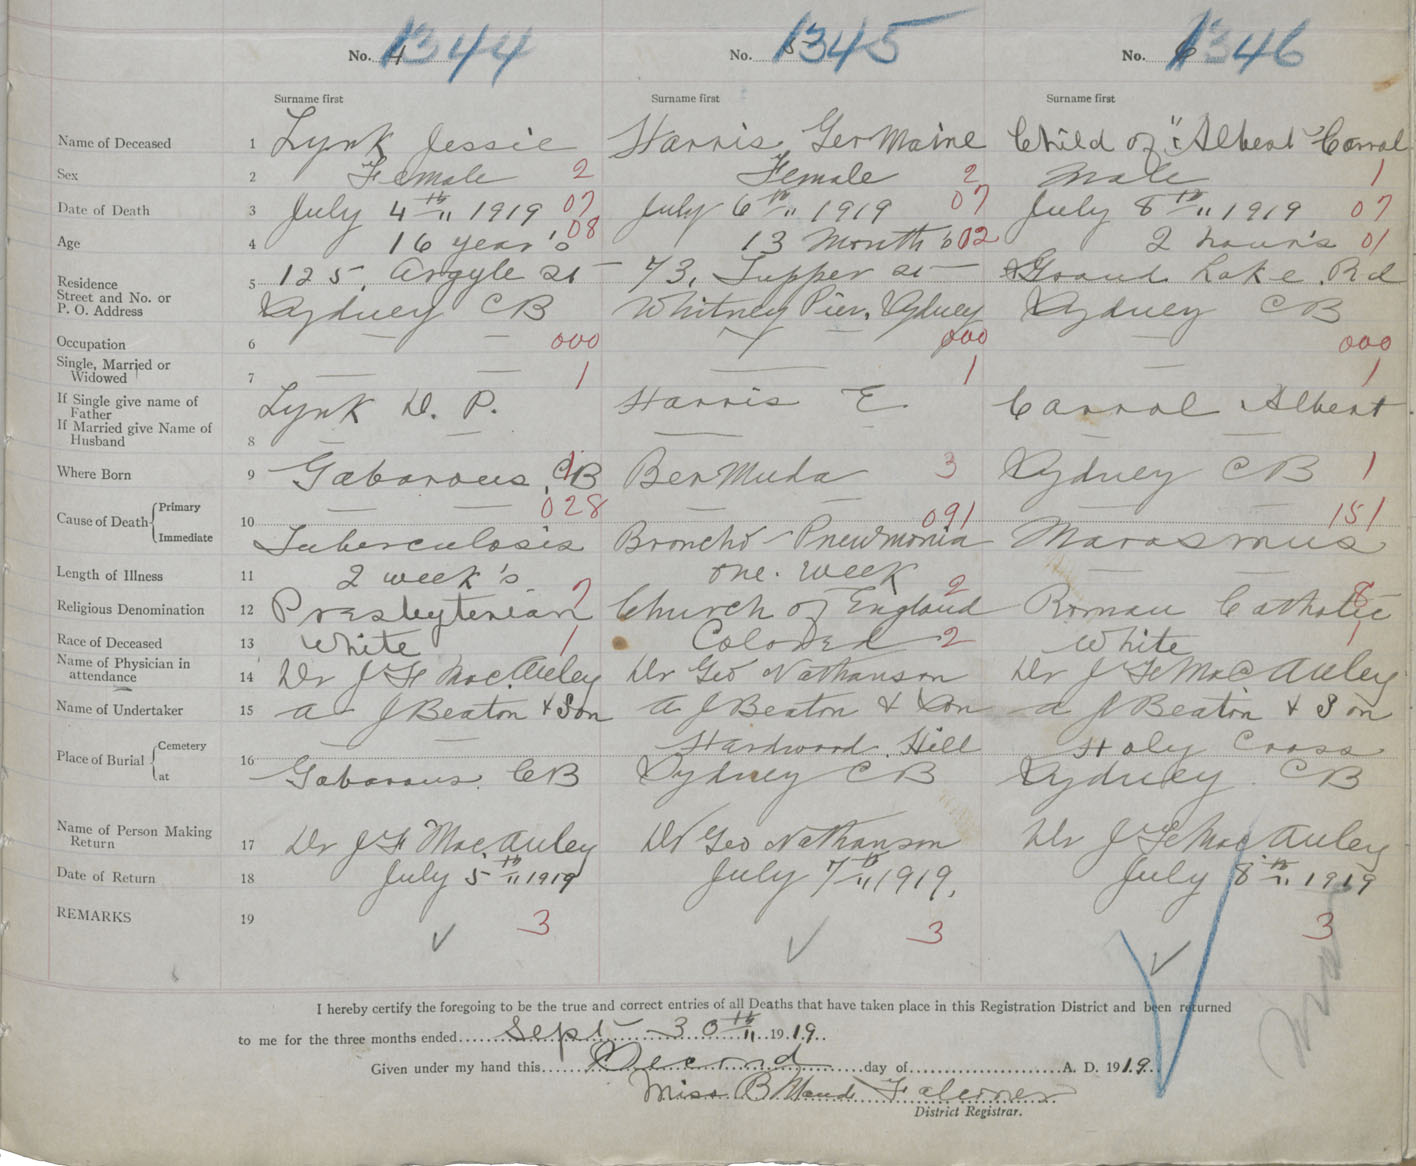 No. 4 1344 No. 5 1345 No. 6 1346
Surname first Surname first Surname first
Name of Deceased 1 Lynk Jessie Harris, Germaine Child of "Albert" Carral
Sex 2 Female 2 Female 2 Male 1
Date of Death 3 July 4th 1919 07 July 6th 1919 07 July 8th 1919 07
Age 4 16 year's 08 13 Month's 02 2 hour's 01
Residence 5 125, Argyle St 73, Tupper St Grand Lake Rd
Street and No. or
P. O. Address Sydney CB Whitney Pier, Sydney Sydney CB
Occupation 6 — — 000 — 000 — 000
Single, Married or
Widowed 7 — — 1 — 1 — 1
If Single give name of
Father Lynk D. P. Harris E. Carral Albert.
If Married give Name of
Husband 8 — — — — —
Where Born 9 Gabarous, CB 1 Bermuda 3 Sydney CB 1
Cause of Death Primary 10 — — 028 — — 091 — — 151
Immediate Tuberculosis Broncho-Pneumonia Marasmus
Length of Illness 11 2 week's one. week — —
Religious Denomination 12 Presbyterian 7 Church of England 2 Roman Catholic 8
Race of Deceased 13 White 1 Colored 2 White 1
Name of Physician in
attendance 14 Dr J F MacAuley Dr Geo Nathanson Dr J F MacAuley
Name of Undertaker 15 A J Beaton & Son A J Beaton & Son A J Beaton & Son
Place of Burial Cemetery 16 — — Hardwood Hill Holy Cross
at Gabarous. CB Sydney CB Sydney CB
Name of Person Making
Return 17 Dr J F MacAuley Dr Geo Nathanson Dr J F MacAuley
Date of Return 18 July 5th 1919 July 7th 1919. July 8th 1919
REMARKS 19 3 3 3
I hereby certify the foregoing to be the true and correct entries of all Deaths that have taken place in this Registration District and been returned
to me for the three months ended Sept 30th 1919.
Given under my hand this Second day of A. D. 1919.
Miss B Maud Falconer
District Registrar.